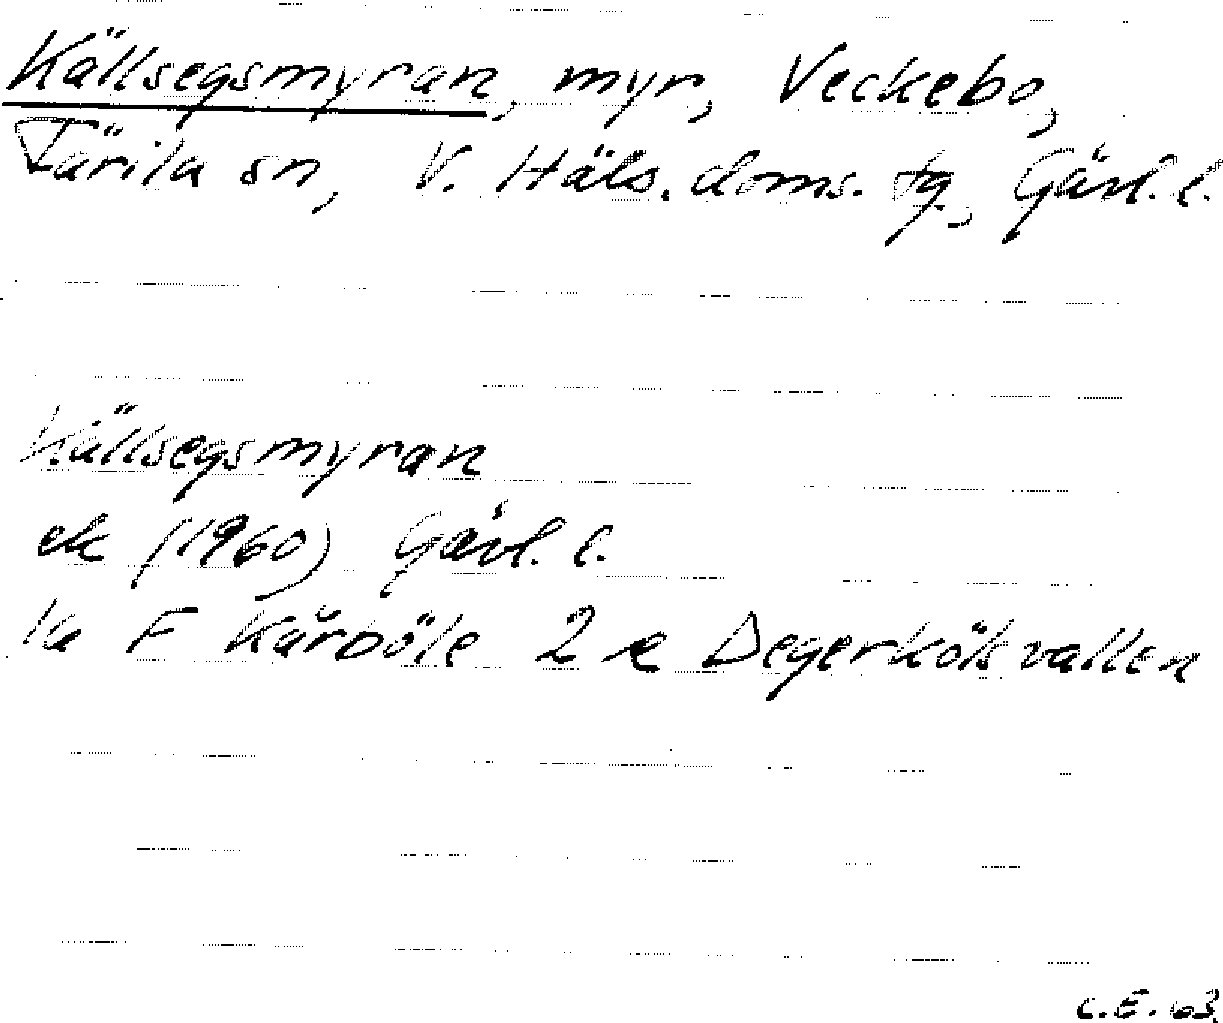 Källsegsmyran, myr, Veckebo,
Färila sn, V. Häls. doms. tg, Gävl. l.
Källsegsmyran
ek (1960) Gävl. l.
la F Kårböle 2 e Degerkölsvallen
C.E. 63.